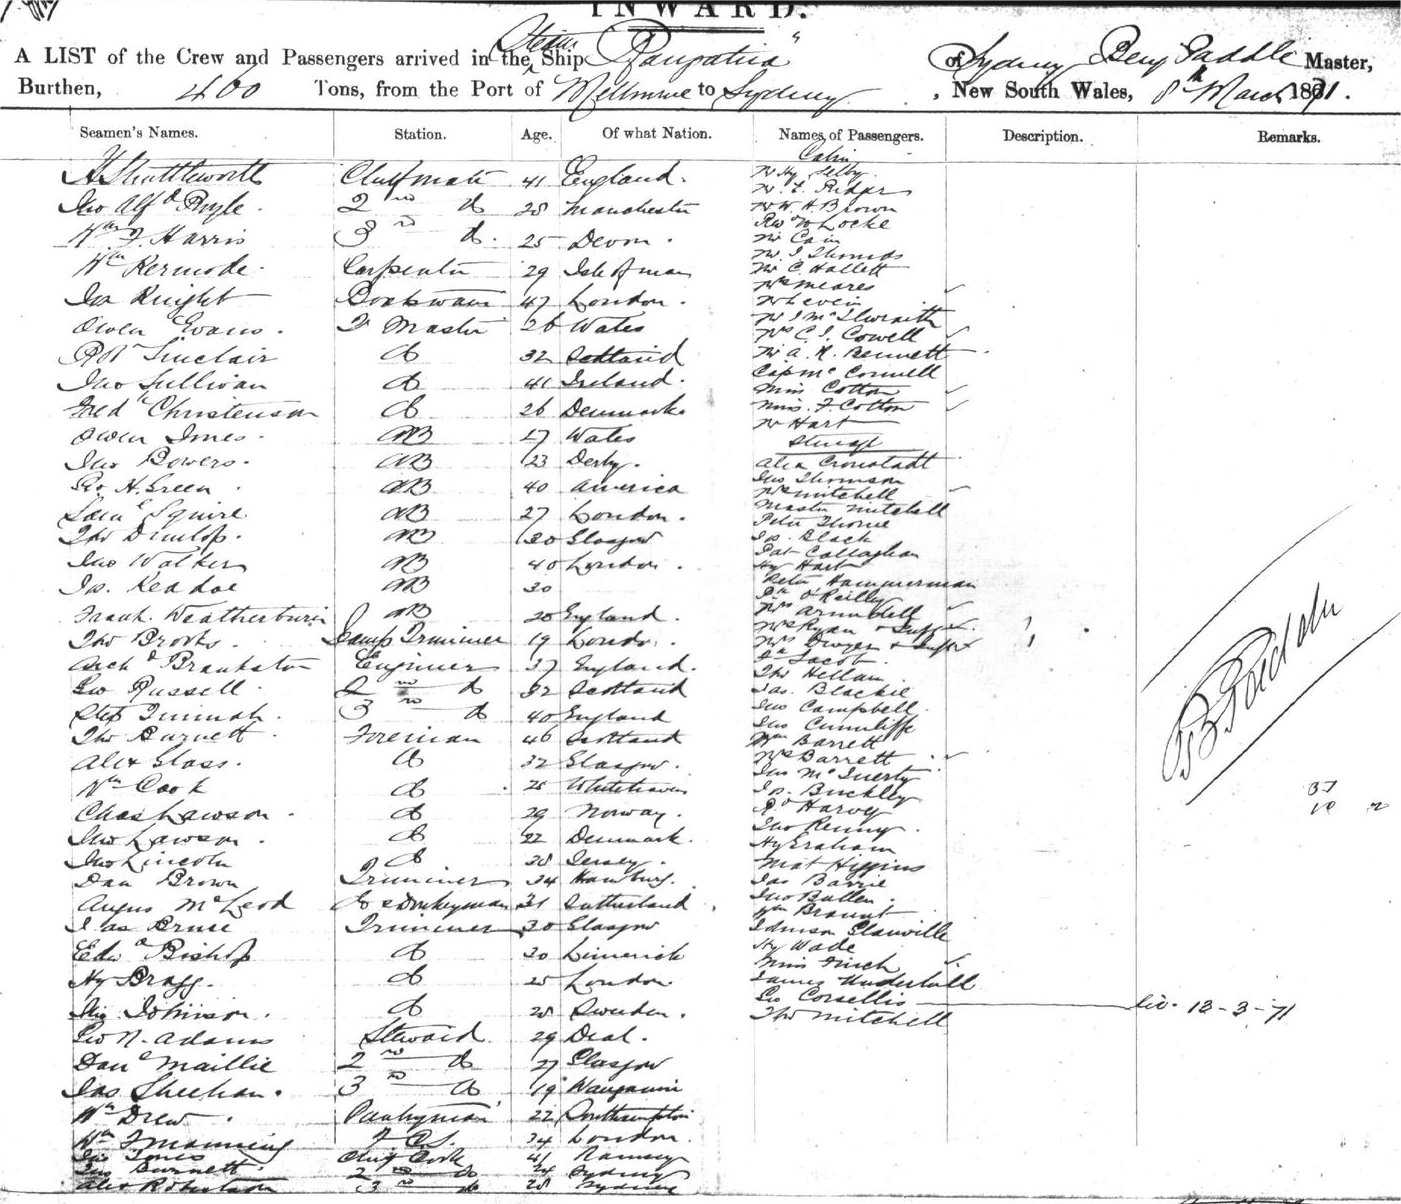 INWARD.
A LIST of the Crew and Passengers arrived in the Steam Ship "Rangatira" of Sydney Benj Paddle Master,
Burthen, 400 Tons, from the Port of Melbourne to Sydney, New South Wales, 8th March 1871.
Seamen's Names. Station. Age. Of what Nation. Names of Passengers. Description. Remarks.
Cabin
A Shuttleworth Chief Mate 41 England. Mr Hy. Selby
Mr.
Jno Alfd Pyle. 2nd do 28 Manchester Mr W. H. Brown
Revd Locke
Wm F. Harris 3rd do. 25 Devon. Mr Cain
Mr. J. Thomas
Wm Kermode. Carpenter 29 Isle of man Mr C Hallett
Mrs Meares
Jas Knight Boatswain 47 London. Mr Levein
Mr J McIlwraith
Owen Evans. Qr Master 26 Wales Mrs C. J. Cowell
Robt Sinclair do 32 Scotland Mr A. K. Bennett
Jno Sullivan do 41 Ireland. Capt McConnell
Miss Cotton
Fred Christenson do 26 Denmark Miss. F. Cotton
Mr Hart
Owen Jones. AB 27 Wales Steerage
Jno Bowers. AB 23 Derby. Alex Cronstadt
Jno Thomson
Geo. H. Green. AB 40 America Mrs Mitchell
Master Mitchell
Saml Squire AB 27 London. Peter Thorne
Thos Dunlop. AB 30 Glasgow Js. Black
Pat Callaghan
Jno Walker AB 40 London. Hy Hart
Js. Keadoe AB 30 Peter Hammerman
O'Reilly
Frank. Weatherburn AB 20 England. Mrs Armidell
Mrs Ryan & Infant
Thos Brooks. Lamp Trimmer 19 London. Mrs Dwyer & Infant
Jacob.
Archd Brankston Engineer 37 England. Thos Hellam
Geo Russell. 2nd do 32 Scotland Jas. Blackie
Jno Campbell.
Step 3rd do 40 England Jno Cunliffe
Thos Burnett. Foreman 46 Scotland Wm Barrett
Mrs Barrett
Alex Glass. do 32 Glasgow. Jno McInerty
Wm Cook do 25 Whitehaven Js. Buckley
Harvey
Chas Lawson. do 29 Norway. Jno Kenny.
Jno Lawson. do 22 Denmark. Hy Graham
Jno Lincoln do 28 Jersey. Mat Higgins
Dan Brown Trimmer 34 Hamburg. Jas Barrie
Jno Butler.
Angus McLeod & Donkeyman 31 Sutherland Wm Braunt
Jas Bruse Trimmer 30 Glasgow Edmison Glanville
Hy Wade
Edwd Bishop do 30 Limerick Miss Finch
Hy Bragg. do 25 London. James Underhill
Geo Corsellis 12-3-71
Johnson. do 28 Sweden. Thos Mitchell
Geo N. Adams Steward. 29 Deal.
Danl Maillie 2nd do 27 Glasgow
Jas Sheehan. 3rd do 19
Wm Drew. Pantryman 22 Southampton
Wm F Manning F. C. S. 34 London.
Jas Jones Chief Cook 41 Ramsey
Jno Burnett. 2nd do 24 Sydney
Alex Robertson 3rd do 28 Sydney
B. Paddle
37
10 2